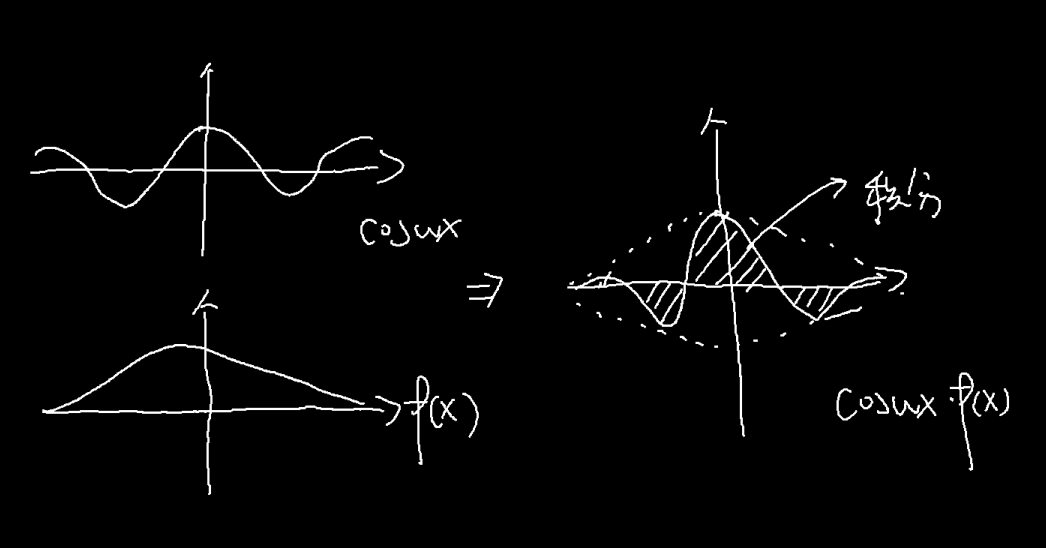 cosωx
f(x)
⇒
积分
cosωx·f(x)